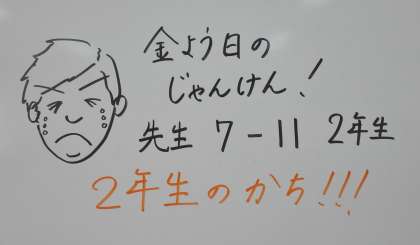 金よう日の
じゃんけん!!
先生 7-11 2年生
2年生のかち!!!